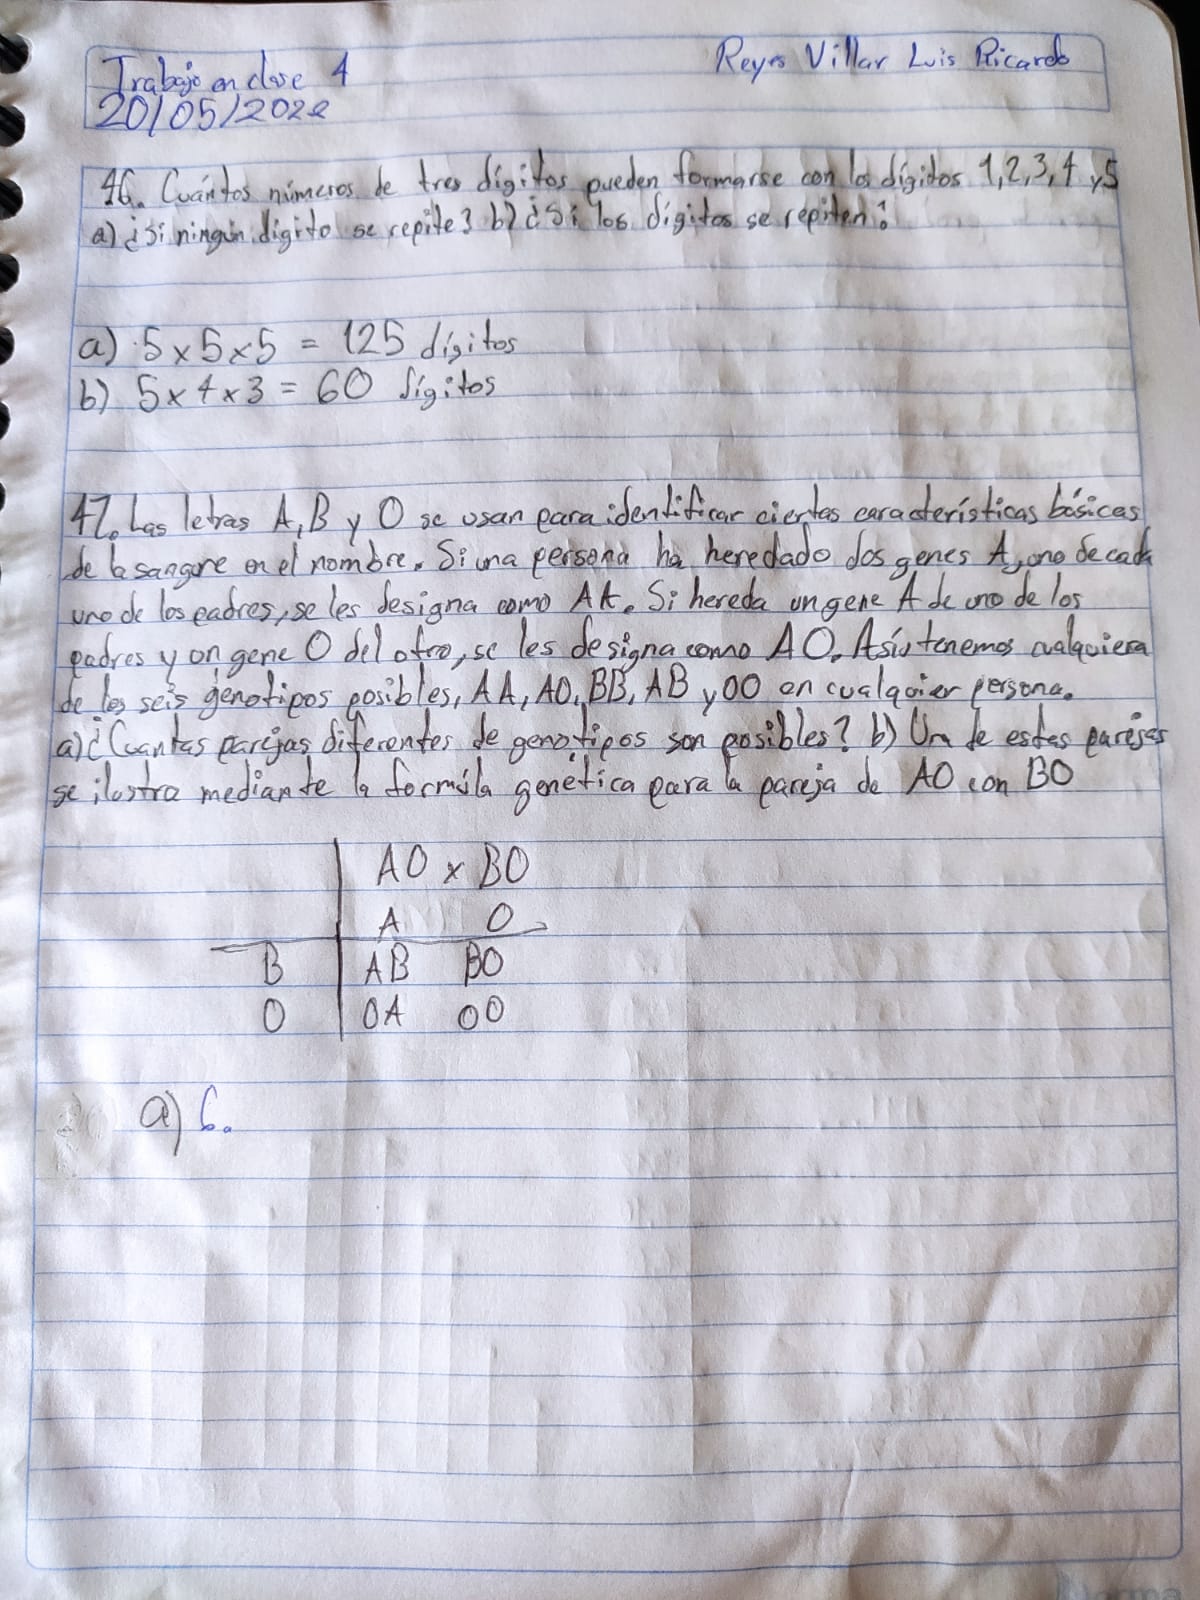 Trabajo en clase 4
Reyes Villar Luis Ricardo
20/05/2022
46. Cuántos números de tres dígitos pueden formarse con los dígitos 1,2,3,4 y 5
a) ¿Si ningún dígito se repite? b) ¿Si los dígitos se repiten?
a) 5 x 5 x 5 = 125 dígitos
b) 5 x 4 x 3 = 60 dígitos
47. Las letras A, B y O se usan para identificar ciertas características básicas
de la sangre en el nombre. Si una persona ha heredado dos genes A, uno de cada
uno de los padres, se les designa como AA. Si hereda un gene A de uno de los
padres y un gene O del otro, se les designa como AO. Así tenemos cualquiera
de los seis genotipos posibles, AA, AO, BB, AB y OO en cualquier persona.
a) ¿Cuantas parejas diferentes de genotipos son posibles? b) Una de estas parejas
se ilustra mediante la formúla genética para la pareja de AO con BO
AO x BO
A O
B AB BO
O OA OO
a) 6.
Norma